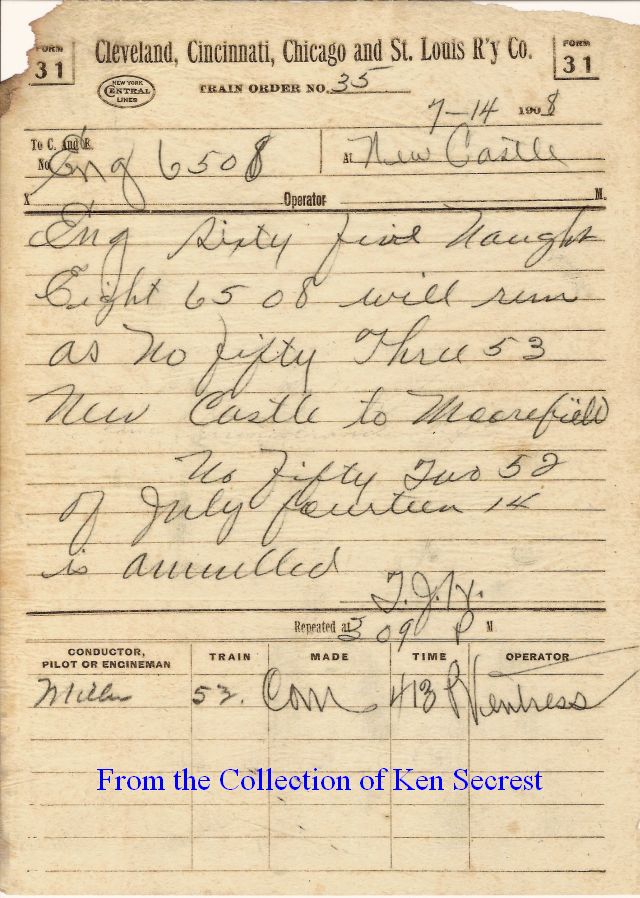 FORM 31 Cleveland, Cincinnati, Chicago and St. Louis R'y Co. FORM 31
NEW YORK CENTRAL LINES
TRAIN ORDER NO. 35
7-14 1908
To C. and E.
No. Eng 6508 At New Castle
X Operator M.
Eng Sixty five Naught
Eight 6508 will run
as No Fifty Three 53
New Castle to Moorefield
No Fifty Two 52
of July fourteen 14
is annulled
Repeated at 3 09 P M
CONDUCTOR, PILOT OR ENGINEMAN TRAIN MADE TIME OPERATOR
Miller 52. Com 413 P Ventress
From the Collection of Ken Secrest